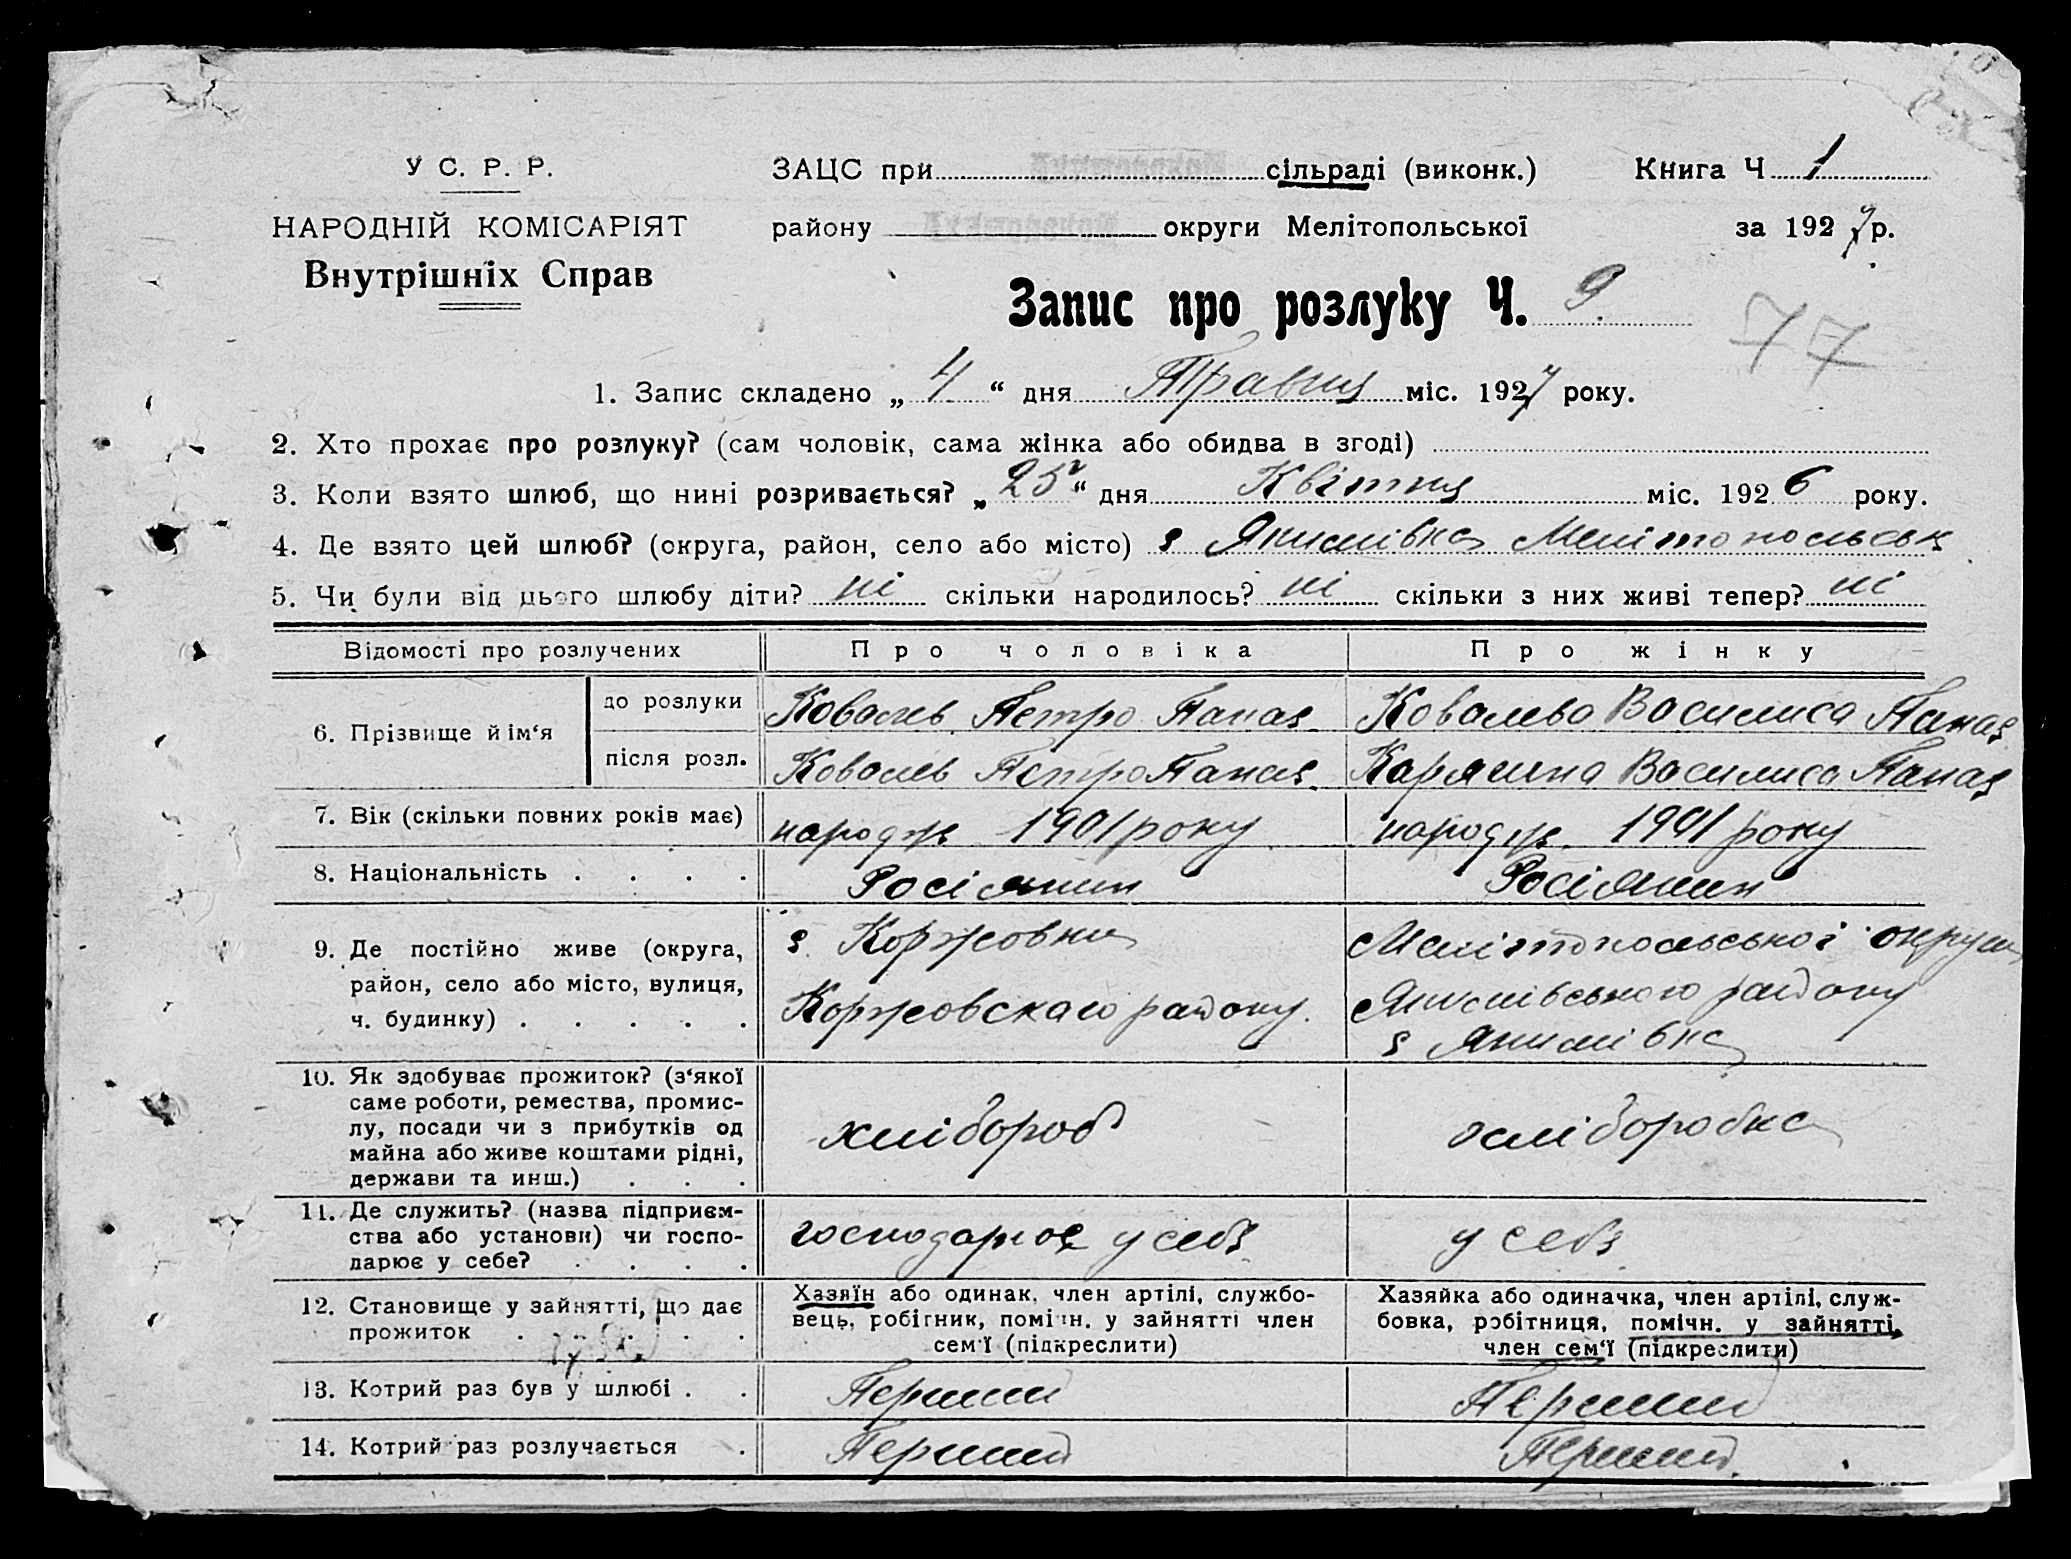 У С. Р. Р.
НАРОДНІЙ КОМІСАРІЯТ
Внутрішніх Справ
ЗАЦС при сільраді (виконк.) Книга Ч 1
району округи Мелітопольської за 1927 р.
Запис про розлуку Ч. 9.
77
1. Запис складено „ 4 “ дня Травня міс. 1927 року.
2. Хто прохає про розлуку? (сам чоловік, сама жінка або обидва в згоді)
3. Коли взято шлюб, що нині розривається? „ 25 “ дня Квітня міс. 1926 року.
4. Де взято цей шлюб? (округа, район, село або місто) с Якимівка Мелітопольськ
5. Чи були від цього шлюбу діти? ні скільки народилось? ні скільки з них живі тепер? ні
Відомості про розлучених Про чоловіка Про жінку
6. Прізвище й ім‘я
до розлуки Ковалев Петро Панас Ковалева Василиса Панас
після розл. Ковалев Петро Панас Карякина Василиса Панас
7. Вік (скільки повних років має) 1901 року 1901 року
8. Національність . . . . Росіянин Росіянин
9. Де постійно живе (округа,
район, село або місто, вулиця,
ч. будинку) . . . . .
с. Коржовка
Коржовскаго району.
Мелітопольської округи
Якимівського району
с Якимівка
10. Як здобуває прожиток? (з‘якої
саме роботи, ремества, промис-
лу, посади чи з прибутків од
майна або живе коштами рідні,
держави та инш.) . . .
хлібороб хліборобка
11. Де служить? (назва підприєм-
ства або установи) чи госпо-
дарює у себе? . . . .
господарює у себе у себе
12. Становище у зайнятті, що дає
прожиток . . . . .
Хазяїн або одинак, член артілі, службо-
вець, робітник, помічн. у зайнятті член
сем‘ї (підкреслити)
Хазяйка або одиначка, член артілі, служ-
бовка, робітниця, помічн. у зайнятті,
член сем‘ї (підкреслити)
13. Котрий раз був у шлюбі . . Перший Перший
14. Котрий раз розлучається . Перший Перший.